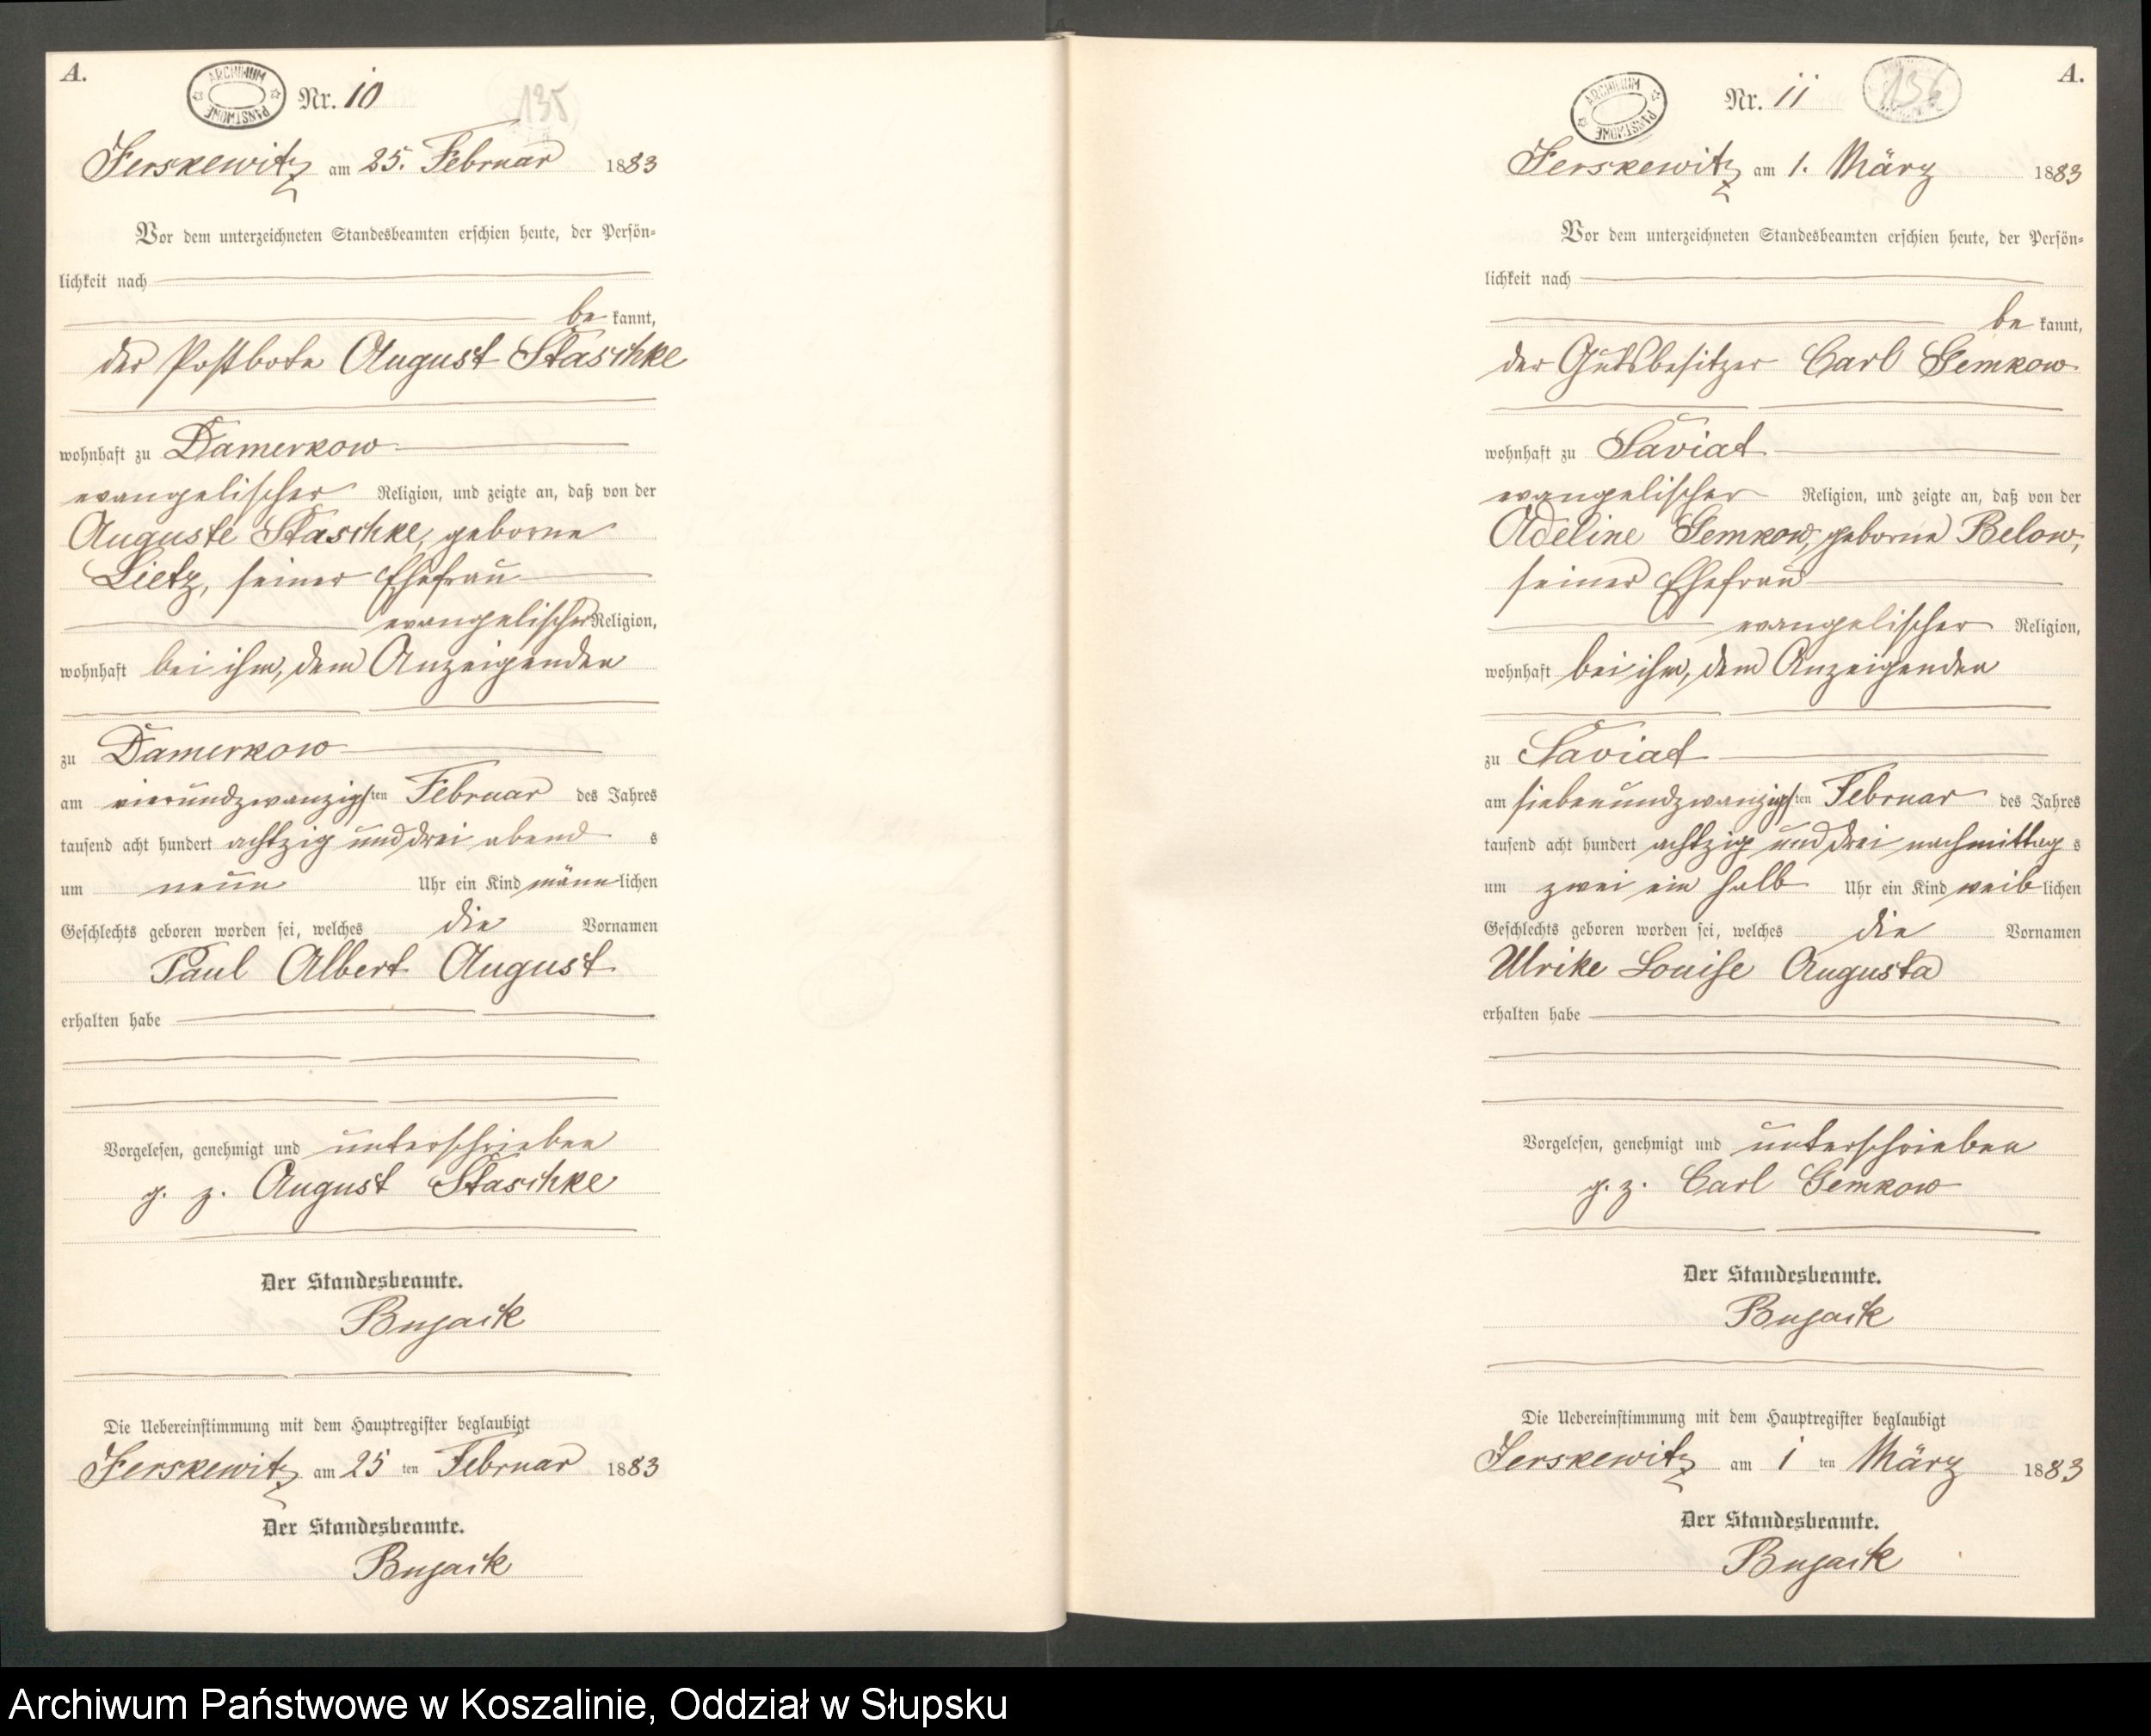 A.
ARCHIWUM PAŃSTWOWE
Nr. 10
135
Jerskewitz am 25. Februar 1883
Vor dem unterzeichneten Standesbeamten erschien heute, der Persön-
lichkeit nach
be kannt,
der Postbote August Staschke
wohnhaft zu Damerkow
evangelischer Religion, und zeigte an, daß von der
Auguste Staschke, geborne
Lietz, seiner Ehefrau
evangelischer Religion,
wohnhaft bei ihm, dem Anzeigenden
zu Damerkow
am vierundzwanzigsten Februar des Jahres
tausend acht hundert achtzig und drei abend s
um neun Uhr ein Kind männlichen
Geschlechts geboren worden sei, welches die Vornamen
Paul Albert August
erhalten habe
Vorgelesen, genehmigt und unterschrieben
g. z. August Staschke
Der Standesbeamte.
Bujack
Die Uebereinstimmung mit dem Hauptregister beglaubigt
Jerskewitz am 25 ten Februar 1883
Der Standesbeamte.
Bujack
A.
ARCHIWUM PAŃSTWOWE
Nr. 11
136
Jerskewitz am 1. März 1883
Vor dem unterzeichneten Standesbeamten erschien heute, der Persön-
lichkeit nach
be kannt,
der Gutsbesitzer Carl Gemkow
wohnhaft zu Saviat
evangelischer Religion, und zeigte an, daß von der
Adeline Gemkow, geborne Below,
seiner Ehefrau
evangelischer Religion,
wohnhaft bei ihm, dem Anzeigenden
zu Saviat
am siebenundzwanzigsten Februar des Jahres
tausend acht hundert achtzig und drei nachmittag s
um zwei ein halb Uhr ein Kind weiblichen
Geschlechts geboren worden sei, welches die Vornamen
Ulrike Louise Augusta
erhalten habe
Vorgelesen, genehmigt und unterschrieben
g. z. Carl Gemkow
Der Standesbeamte.
Bujack
Die Uebereinstimmung mit dem Hauptregister beglaubigt
Jerskewitz am 1 ten März 1883
Der Standesbeamte.
Bujack
Archiwum Państwowe w Koszalinie, Oddział w Słupsku